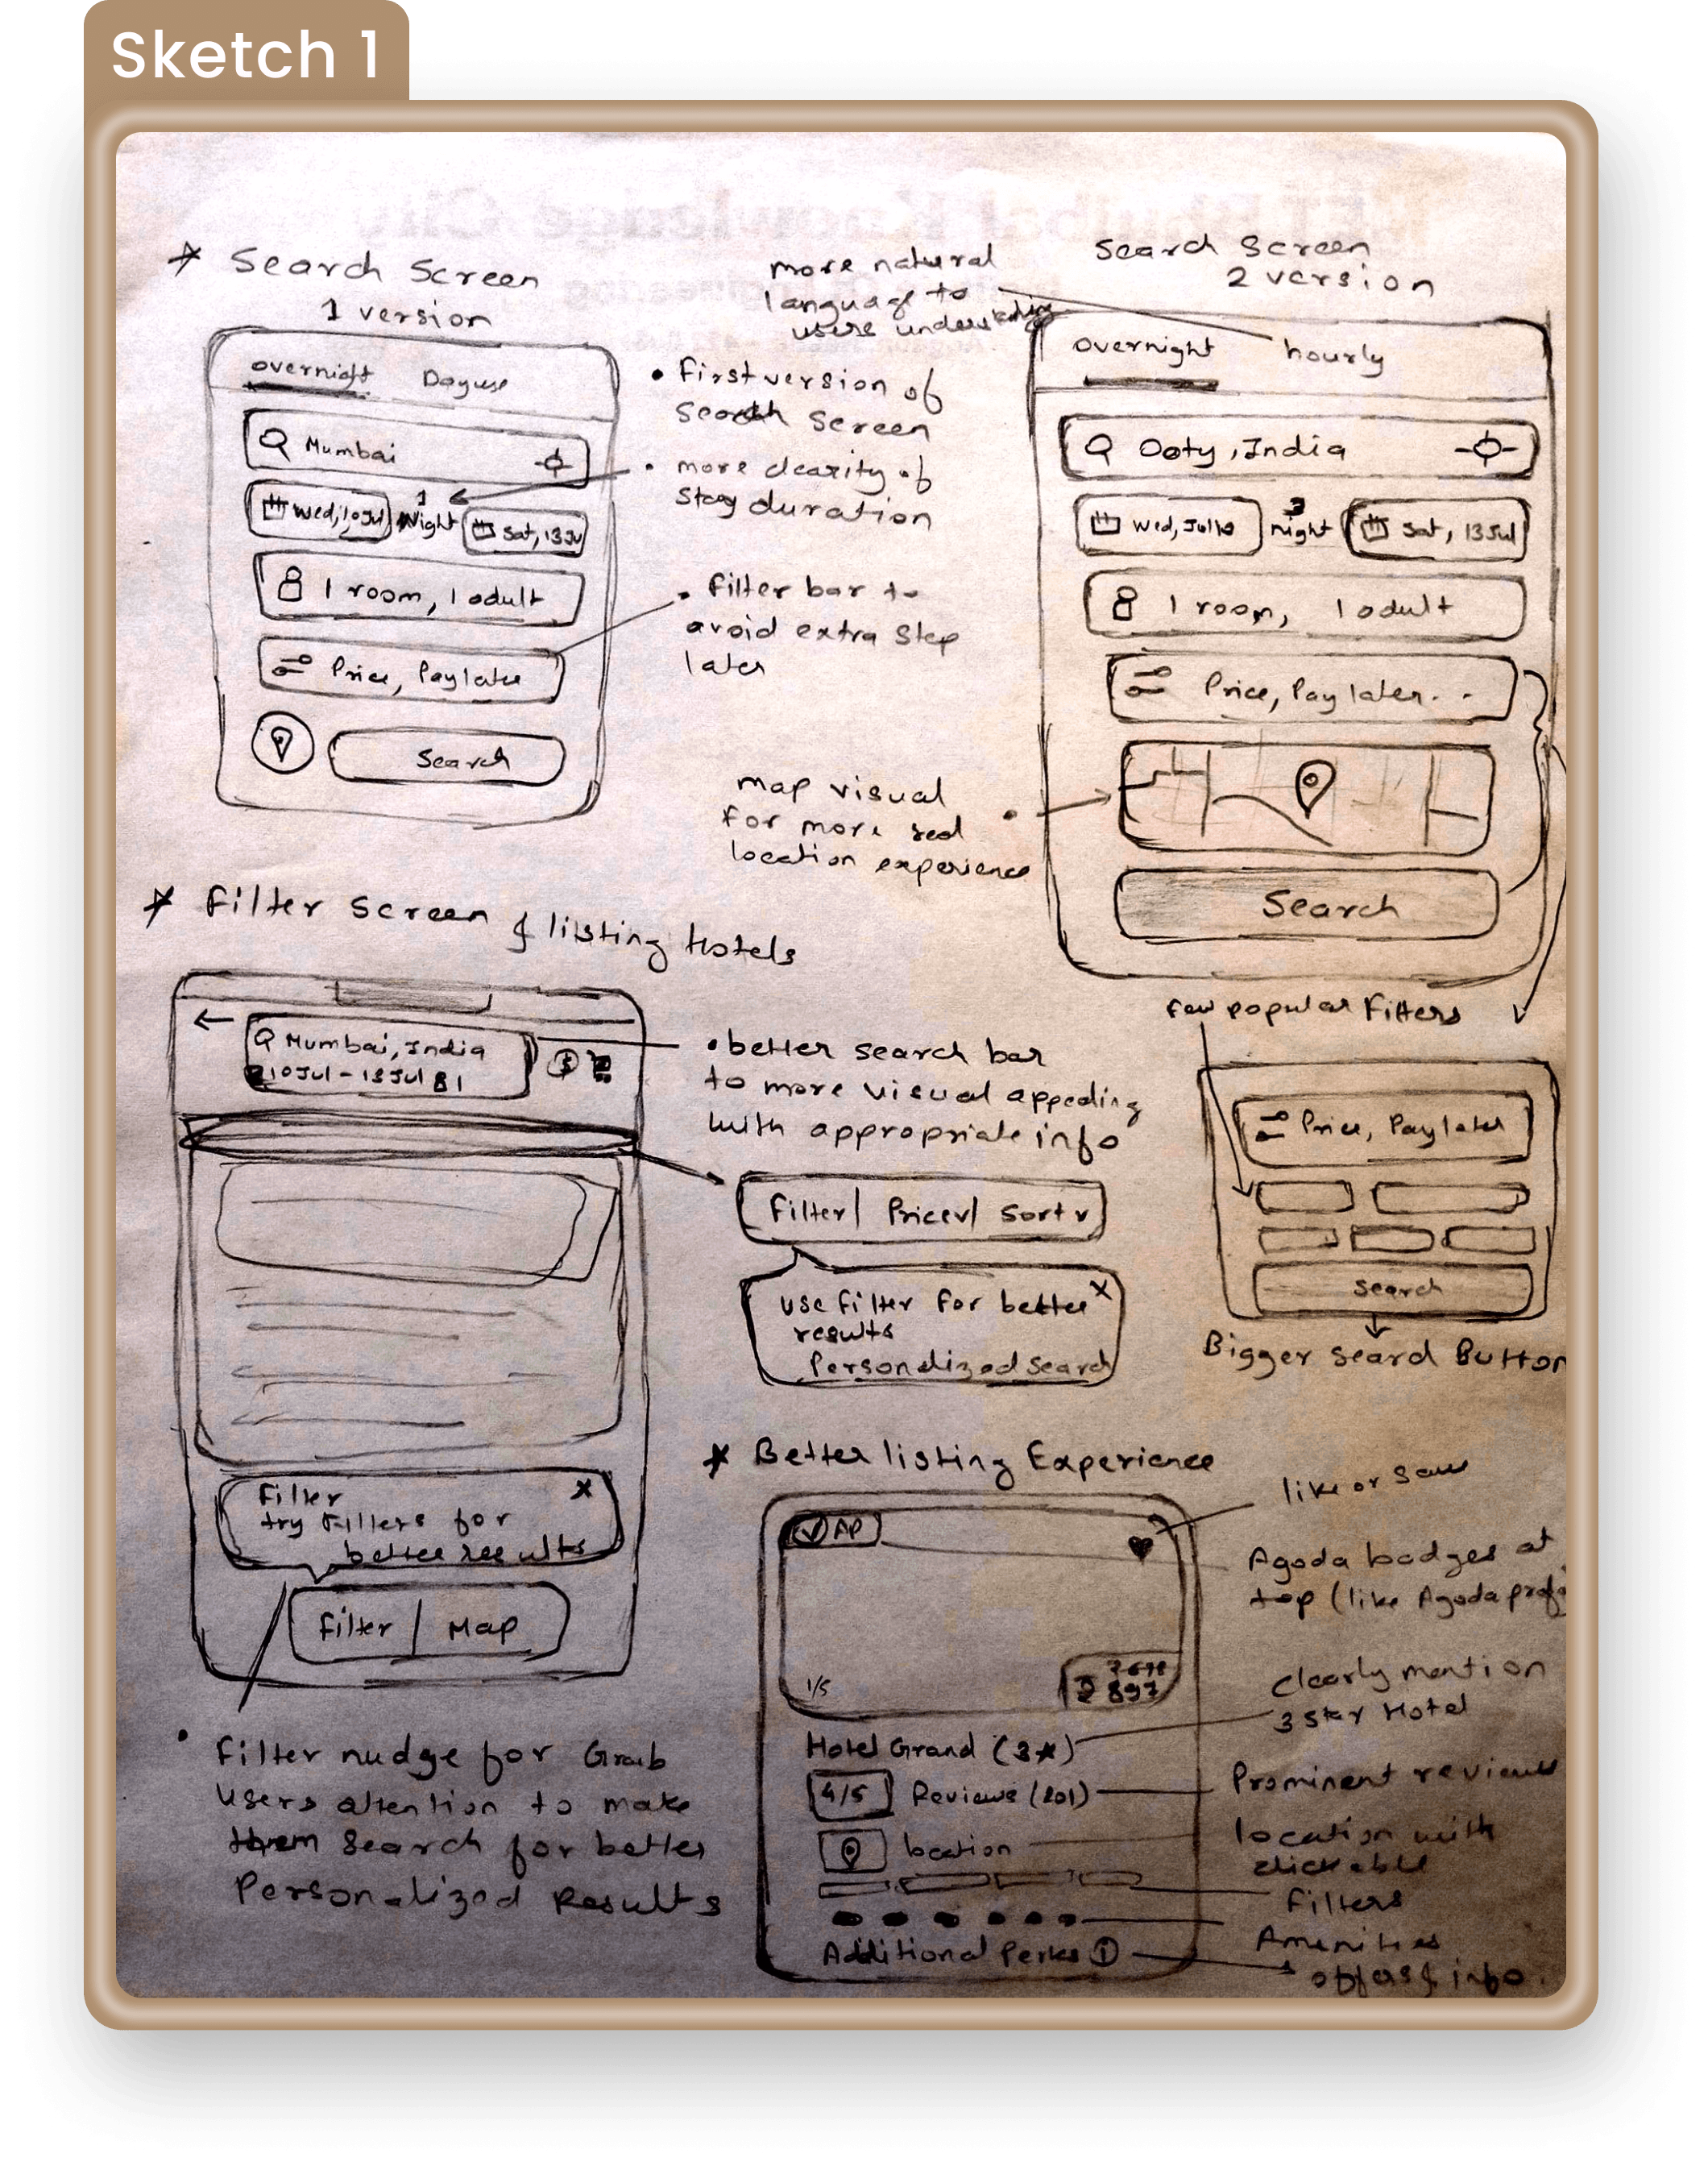 Sketch 1
Search Screen
1 version
overnight Dayuse
Mumbai
Wed, 10 Jul 1 Night Sat, 13 Ju
1 room, 1 adult
Price, Pay later
Search
more natural
language to
users understanding
• First version of
Search Screen
• more clearity of
Stay duration
• Filter bar to
avoid extra Step
later
Search Screen
2 version
overnight hourly
Ooty, India
Wed, Jul 10 3 night Sat, 13 Jul
1 room, 1 adult
Price, Pay later..
Search
map visual
for more real
location experience
Filter Screen & listing Hotels
Mumbai, India
10 Jul - 13 Jul 1
Filter
try Filters for
better results
Filter | Map
• better search bar
to more visual appealing
with appropriate info
Filter | Price v | Sort v
use filter for better x
results
Personalized Search
few popular Filters
Price, Pay later
Search
Bigger search Button
• Filter nudge for Grab
Users attention to make
them Search for better
Personalized Results
Better listing Experience
AP
1/5
897
Hotel Grand (3★)
4/5 Reviews (201)
location
Additional Perks i
like or save
Agoda badges at
top (like Agoda
clearly mention
3 star Hotel
Prominent reviews
location with
clickable
Filters
Amenities
offers & info.